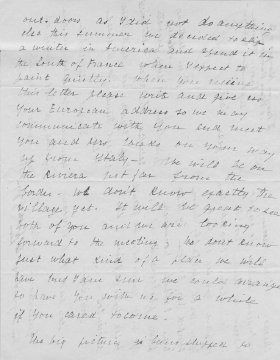 out doors as I did not do anything
else this summer we decided to skip
a winter in America and spend it in
the South of France where I expect to
paint quietly. When you receive
this letter please write and give us
your European address so we may
communicate with you and meet
you and Mrs on your way
up from Italy - We will be on
the Riviera not far from the
border - we don't know exactly the
village yet. It will be great to see
both of you and we are looking
forward to the meeting, we don't know
just what kind of a place we will
have but I am sure we could arrange
to have you with us for a while
if you cared to come.
The big picture is being shipped to